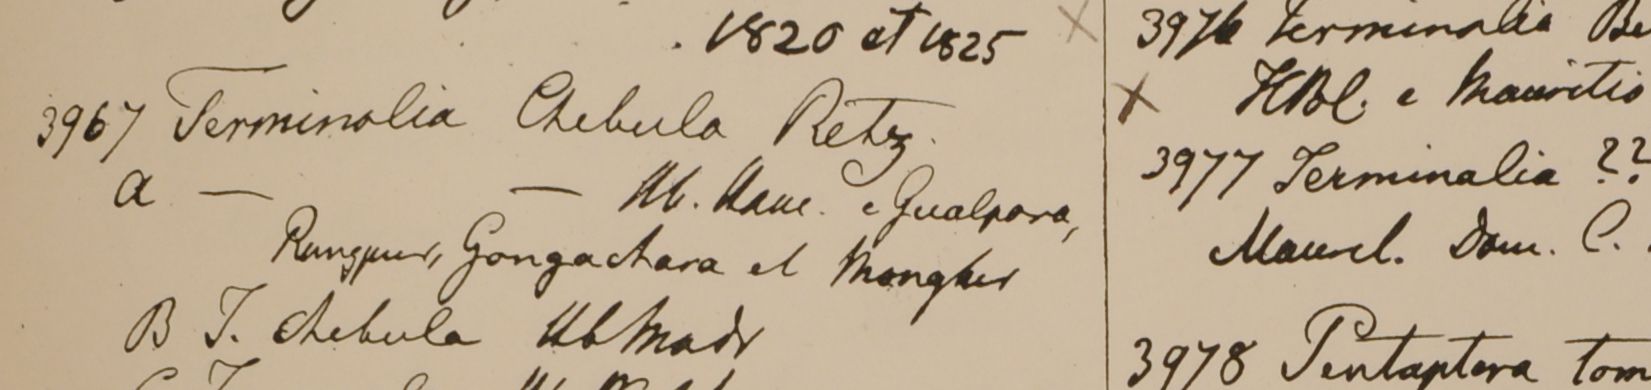 1820 et 1825
3967 Terminalia Chebula Retz.
a — — Hb. Ham. e Gualpara,
Rungpur, Gongachara et Mongher
B T. Chebula Hb Madr
3976 Terminalia Be
HBC. e Mauritio
3977 Terminalia ??
Maurel. Dom. C.
3978 Pentaptera tom